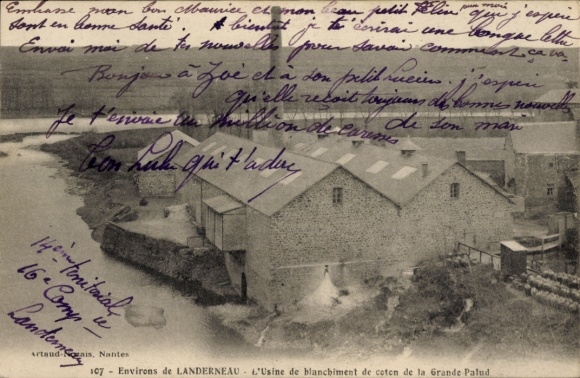 Embrasse mon bon Maurice et mon beau petit Félin pour moi qui j'espère
sont en bonne santé. A bientot je t'écrirai une longue lettre
Envoi moi de tes nouvelles pour savoir comment ça va.
Bonjour à Zoé et à son petit Lucien. j'espère
qu'elle recoit toujours de bonne nouvelle
de son mari
Je t'envoie un million de caresses
Ton Lulu qui t'adore
14ème territorial
16e Compie
Landerneau
Artaud-Nozais, Nantes
107 - Environs de LANDERNEAU - L'Usine de blanchiment de coton de la Grande Palud